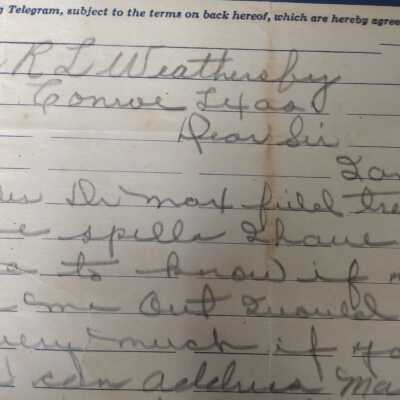 g Telegram, subject to the terms on back hereof, which are hereby agree
R L Weathersby
Conroe Texas
Dear Sir
I am
Dr Maxfield tre
spells I have
to know if
me out I would
very much if yo
can address Ma